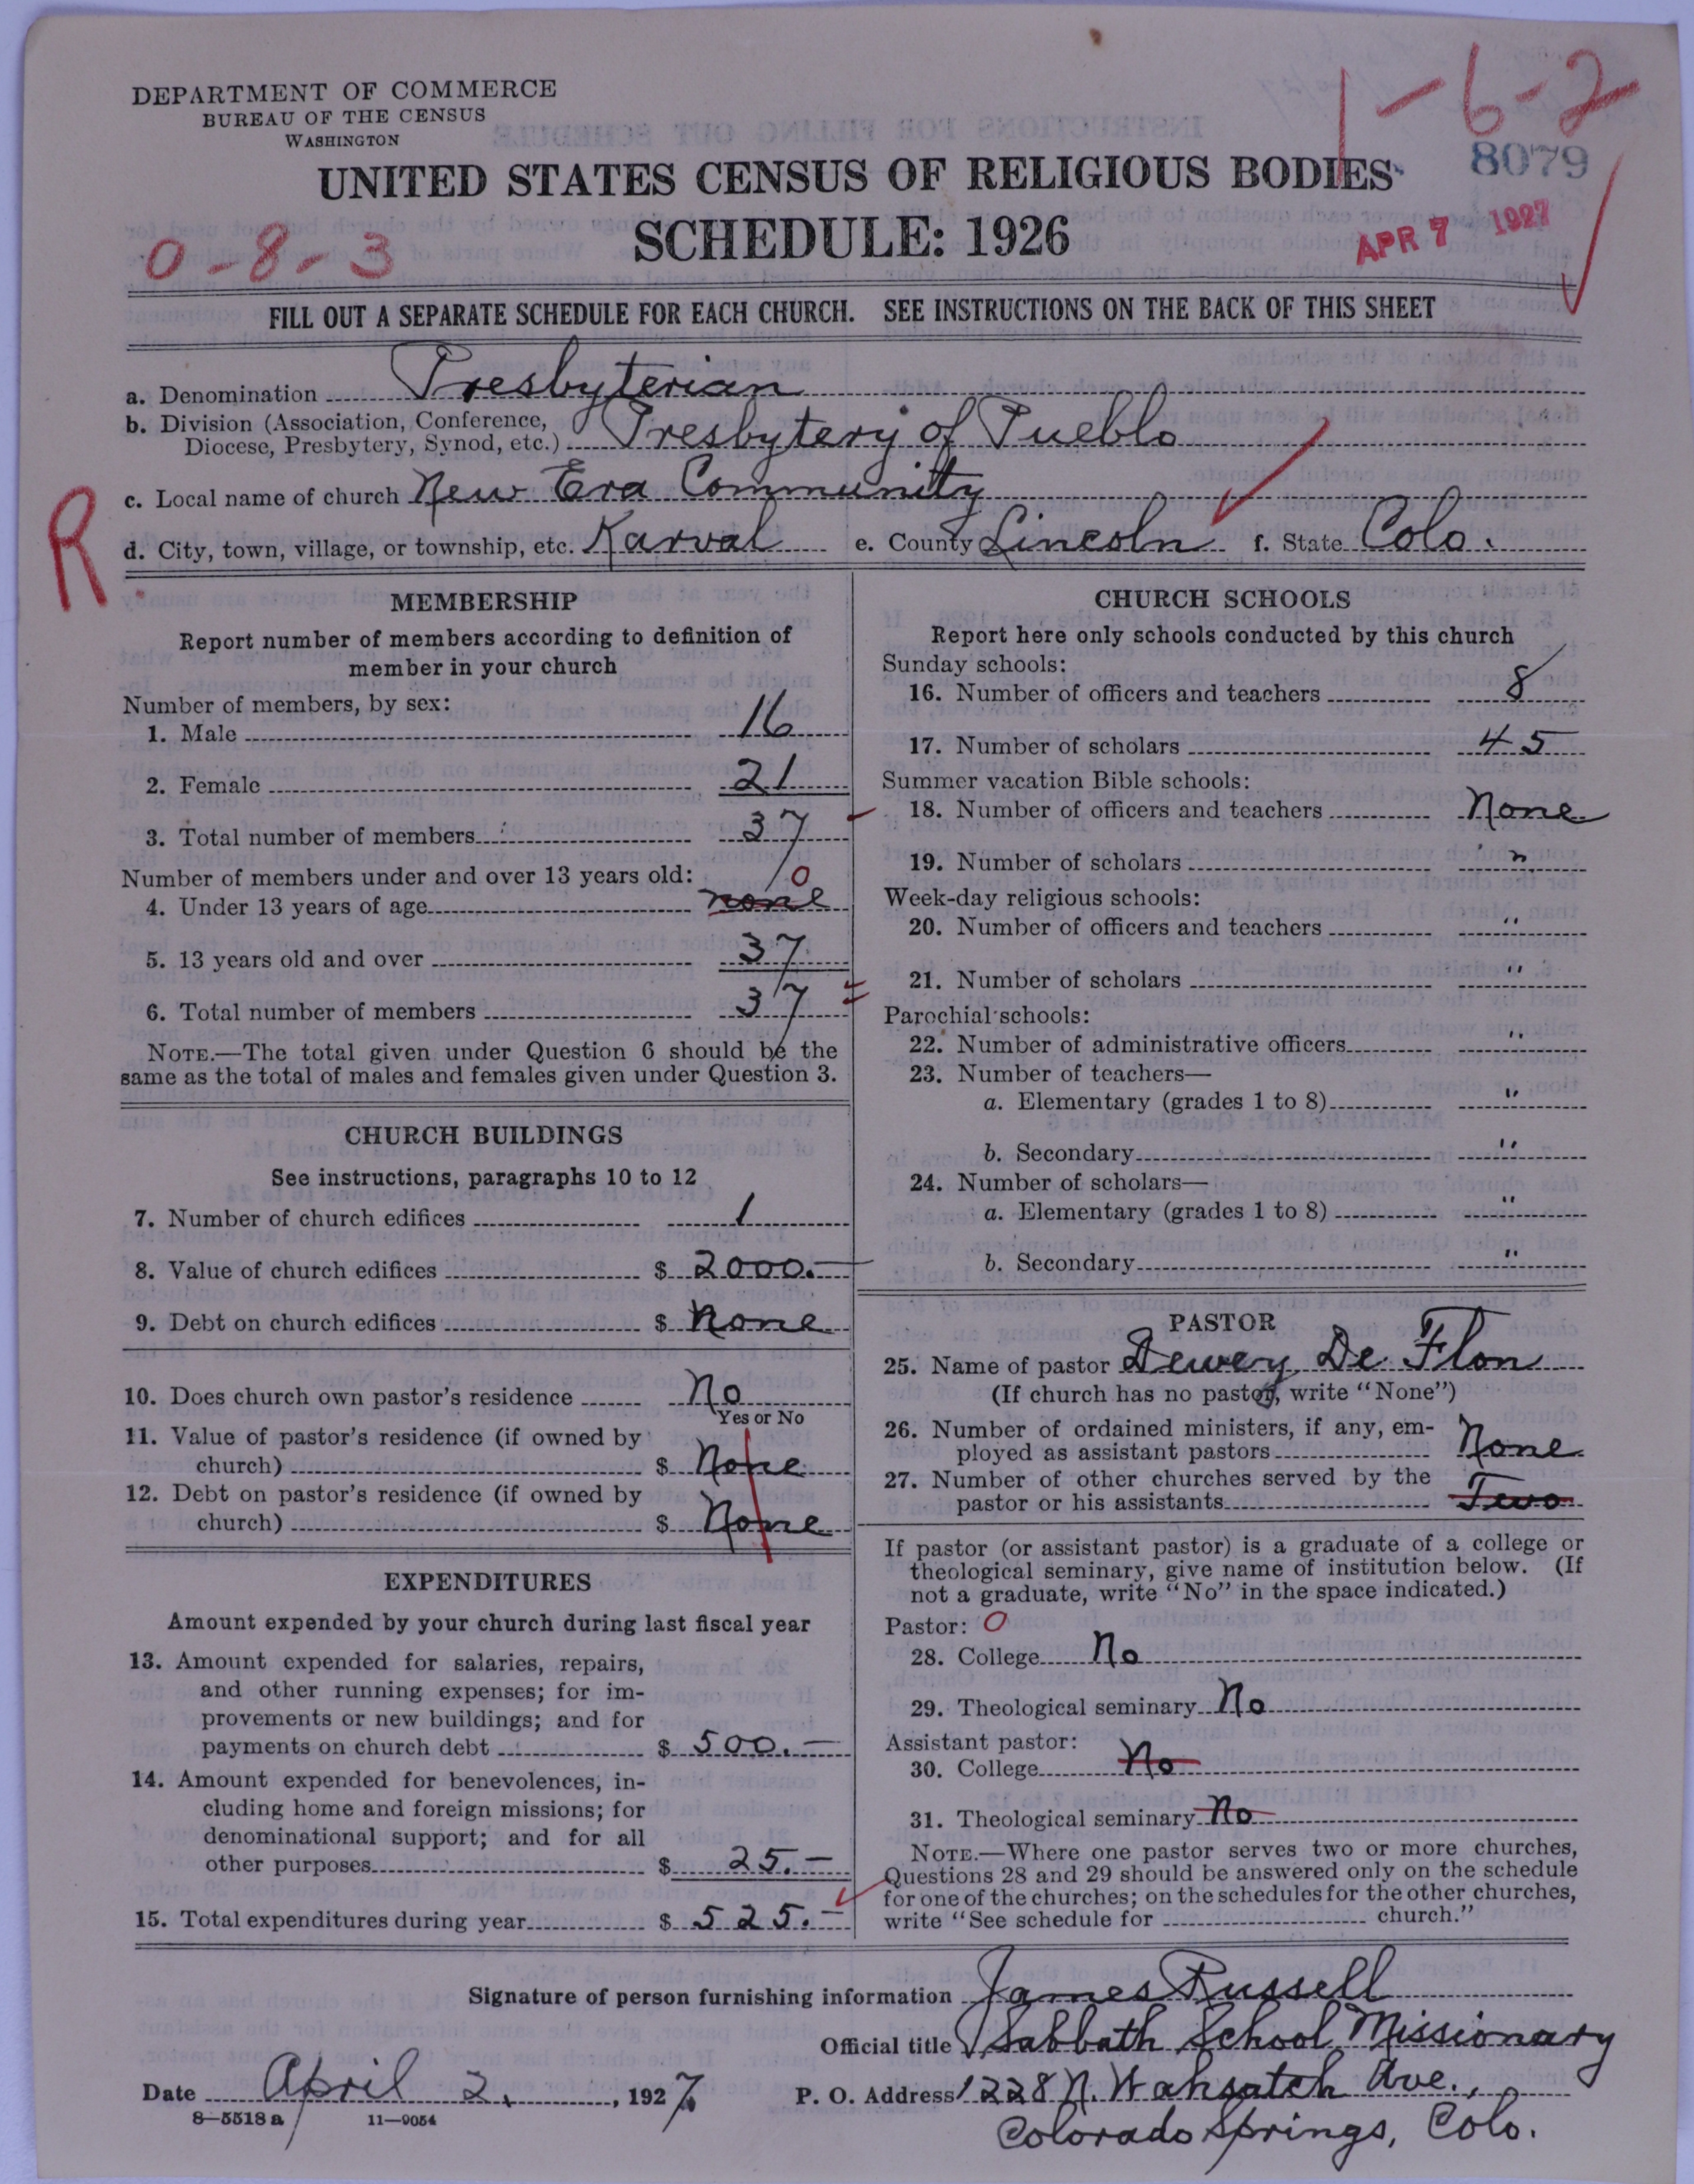 DEPARTMENT OF COMMERCE
BUREAU OF THE CENSUS
WASHINGTON
1-6-2
8079
UNITED STATES CENSUS OF RELIGIOUS BODIES
SCHEDULE: 1926
APR 7 1927
0-8-3
FILL OUT A SEPARATE SCHEDULE FOR EACH CHURCH. SEE INSTRUCTIONS ON THE BACK OF THIS SHEET
a. Denomination Presbyterian
b. Division (Association, Conference,
Diocese, Presbytery, Synod, etc.) Presbytery of Pueblo
R
c. Local name of church New Era Community
d. City, town, village, or township, etc. Karval e. County Lincoln f. State Colo.
MEMBERSHIP
Report number of members according to definition of
member in your church
Number of members, by sex:
1. Male 16
2. Female 21
3. Total number of members 37
Number of members under and over 13 years old:
0
4. Under 13 years of age none
5. 13 years old and over 37
6. Total number of members 37
NOTE.—The total given under Question 6 should be the
same as the total of males and females given under Question 3.
CHURCH BUILDINGS
See instructions, paragraphs 10 to 12
7. Number of church edifices 1
8. Value of church edifices $ 2000.—
9. Debt on church edifices $ None
10. Does church own pastor's residence No
Yes or No
11. Value of pastor's residence (if owned by
church) $ None
12. Debt on pastor's residence (if owned by
church) $ None
EXPENDITURES
Amount expended by your church during last fiscal year
13. Amount expended for salaries, repairs,
and other running expenses; for im-
provements or new buildings; and for
payments on church debt $ 500.—
14. Amount expended for benevolences, in-
cluding home and foreign missions; for
denominational support; and for all
other purposes $ 25.—
15. Total expenditures during year $ 525.—
CHURCH SCHOOLS
Report here only schools conducted by this church
Sunday schools:
16. Number of officers and teachers 8
17. Number of scholars 45
Summer vacation Bible schools:
18. Number of officers and teachers None
19. Number of scholars "
Week-day religious schools:
20. Number of officers and teachers "
21. Number of scholars "
Parochial schools:
22. Number of administrative officers "
23. Number of teachers—
a. Elementary (grades 1 to 8) "
b. Secondary "
24. Number of scholars—
a. Elementary (grades 1 to 8) "
b. Secondary "
PASTOR
25. Name of pastor Dewey De Flon
(If church has no pastor, write "None")
26. Number of ordained ministers, if any, em-
ployed as assistant pastors None
27. Number of other churches served by the
pastor or his assistants Two
If pastor (or assistant pastor) is a graduate of a college or
theological seminary, give name of institution below. (If
not a graduate, write "No" in the space indicated.)
Pastor: 0
28. College No
29. Theological seminary No
Assistant pastor:
30. College No
31. Theological seminary No
NOTE.—Where one pastor serves two or more churches,
Questions 28 and 29 should be answered only on the schedule
for one of the churches; on the schedules for the other churches,
write "See schedule for church."
Signature of person furnishing information James Russell
Official title Sabbath School Missionary
Date April 2, 1927 P. O. Address 1228 N. Wahsatch Ave.,
8—5518 a 11—9054
Colorado Springs, Colo.